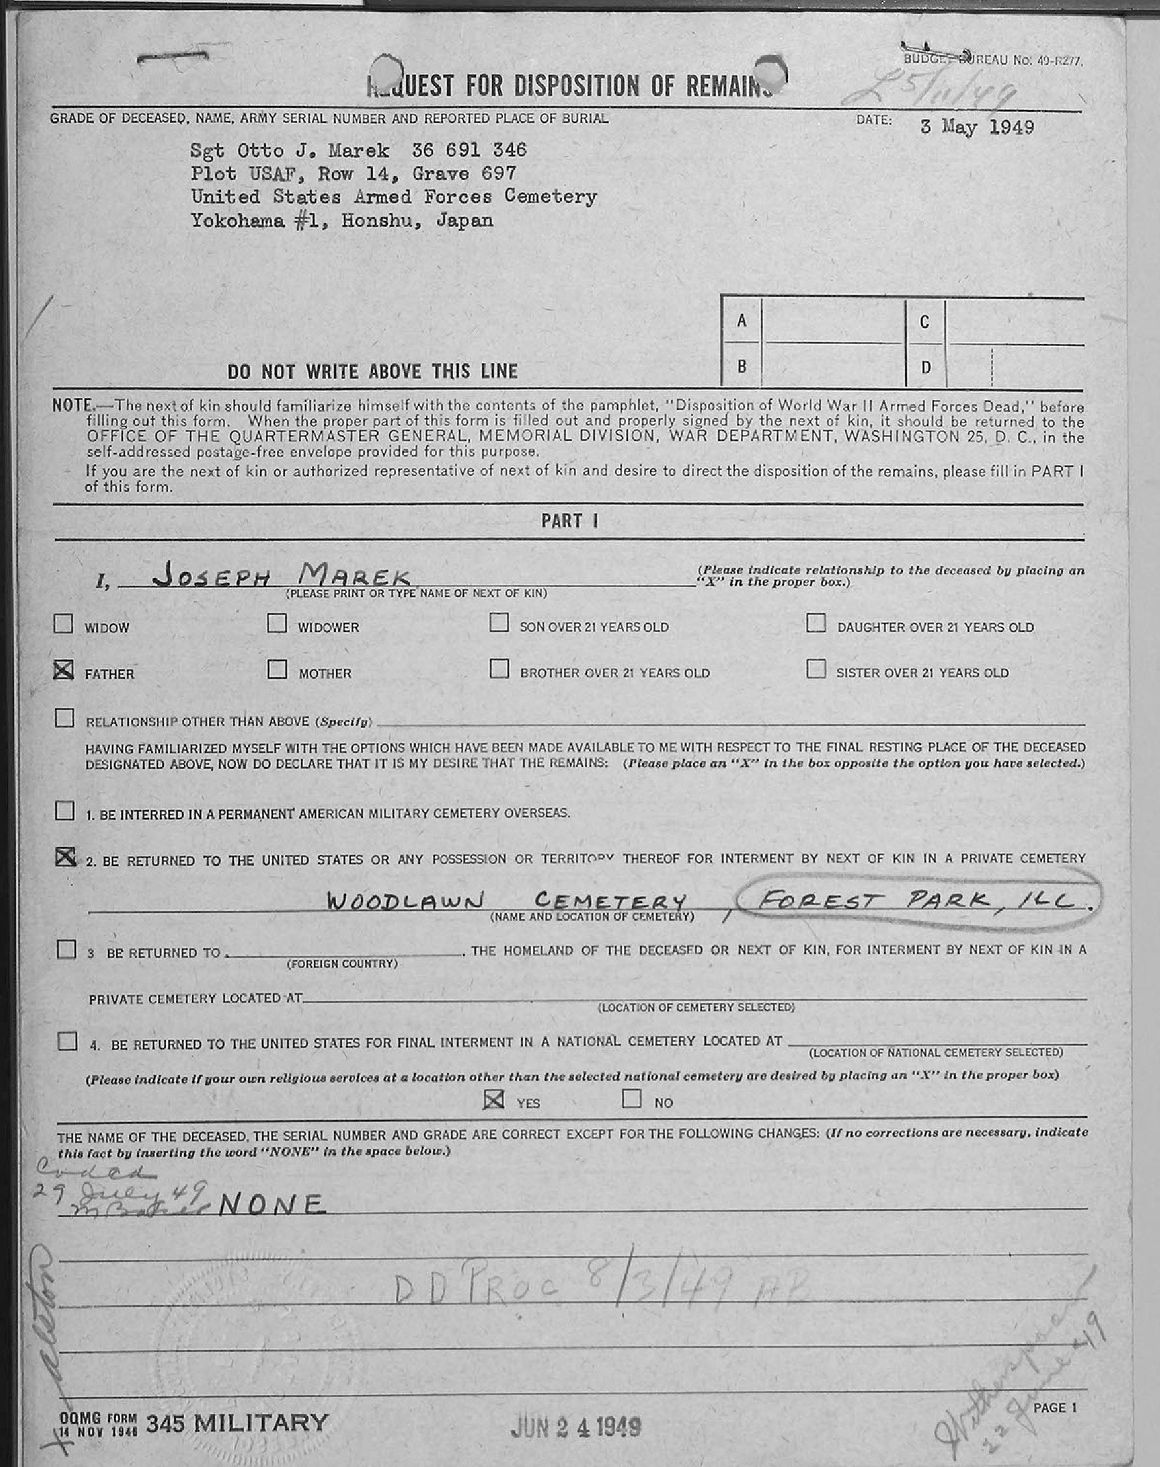 BUDGET BUREAU No. 49-R277.
REQUEST FOR DISPOSITION OF REMAINS
5/11/49
GRADE OF DECEASED, NAME, ARMY SERIAL NUMBER AND REPORTED PLACE OF BURIAL
DATE: 3 May 1949
Sgt Otto J. Marek 36 691 346
Plot USAF, Row 14, Grave 697
United States Armed Forces Cemetery
Yokohama #1, Honshu, Japan
A C
B D
DO NOT WRITE ABOVE THIS LINE
NOTE.—The next of kin should familiarize himself with the contents of the pamphlet, "Disposition of World War II Armed Forces Dead," before
filling out this form. When the proper part of this form is filled out and properly signed by the next of kin, it should be returned to the
OFFICE OF THE QUARTERMASTER GENERAL, MEMORIAL DIVISION, WAR DEPARTMENT, WASHINGTON 25, D. C., in the
self-addressed postage-free envelope provided for this purpose.
If you are the next of kin or authorized representative of next of kin and desire to direct the disposition of the remains, please fill in PART I
of this form.
PART I
I, JOSEPH MAREK
(Please indicate relationship to the deceased by placing an
"X" in the proper box.)
(PLEASE PRINT OR TYPE NAME OF NEXT OF KIN)
WIDOW WIDOWER SON OVER 21 YEARS OLD DAUGHTER OVER 21 YEARS OLD
X FATHER MOTHER BROTHER OVER 21 YEARS OLD SISTER OVER 21 YEARS OLD
RELATIONSHIP OTHER THAN ABOVE (Specify)
HAVING FAMILIARIZED MYSELF WITH THE OPTIONS WHICH HAVE BEEN MADE AVAILABLE TO ME WITH RESPECT TO THE FINAL RESTING PLACE OF THE DECEASED
DESIGNATED ABOVE, NOW DO DECLARE THAT IT IS MY DESIRE THAT THE REMAINS: (Please place an "X" in the box opposite the option you have selected.)
1. BE INTERRED IN A PERMANENT AMERICAN MILITARY CEMETERY OVERSEAS.
X 2. BE RETURNED TO THE UNITED STATES OR ANY POSSESSION OR TERRITORY THEREOF FOR INTERMENT BY NEXT OF KIN IN A PRIVATE CEMETERY
WOODLAWN CEMETERY, FOREST PARK, ILL.
(NAME AND LOCATION OF CEMETERY)
3 BE RETURNED TO , THE HOMELAND OF THE DECEASED OR NEXT OF KIN, FOR INTERMENT BY NEXT OF KIN IN A
(FOREIGN COUNTRY)
PRIVATE CEMETERY LOCATED AT
(LOCATION OF CEMETERY SELECTED)
4. BE RETURNED TO THE UNITED STATES FOR FINAL INTERMENT IN A NATIONAL CEMETERY LOCATED AT
(LOCATION OF NATIONAL CEMETERY SELECTED)
(Please indicate if your own religious services at a location other than the selected national cemetery are desired by placing an "X" in the proper box)
X YES NO
THE NAME OF THE DECEASED, THE SERIAL NUMBER AND GRADE ARE CORRECT EXCEPT FOR THE FOLLOWING CHANGES: (If no corrections are necessary, indicate
this fact by inserting the word "NONE" in the space below.)
Coded
29 July 49
NONE
DD PROC 8/3/49
Alston
Witherspoon
22 June 49
PAGE 1
OQMG FORM
14 NOV 1946 345 MILITARY
JUN 24 1949